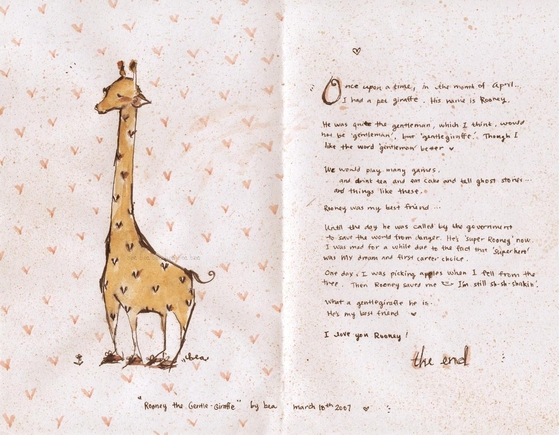 Once upon a time, in the month of April...
I had a pet giraffe. His name is Rooney.
He was quite the gentleman, which I think, would
not be 'gentleman', but 'gentlegiraffe'. Though I
like the word 'gentleman' better
We would play many games,
and drink tea and eat cake and tell ghost stories...
and things like these.
Rooney was my best friend...
Until the day he was called by the government
to save the world from danger. He's 'Super Rooney' now
I was mad for a while due to the fact that 'superhero'
was my dream and first career choice.
One day, I was picking apples when I fell from the
tree. Then Rooney saved me I'm still sh-sh-shakin'.
What a gentlegiraffe he is.
He's my best friend
I love you Rooney!
the end
bea
"Rooney the Gentle-Giraffe" by bea march 18th 2007